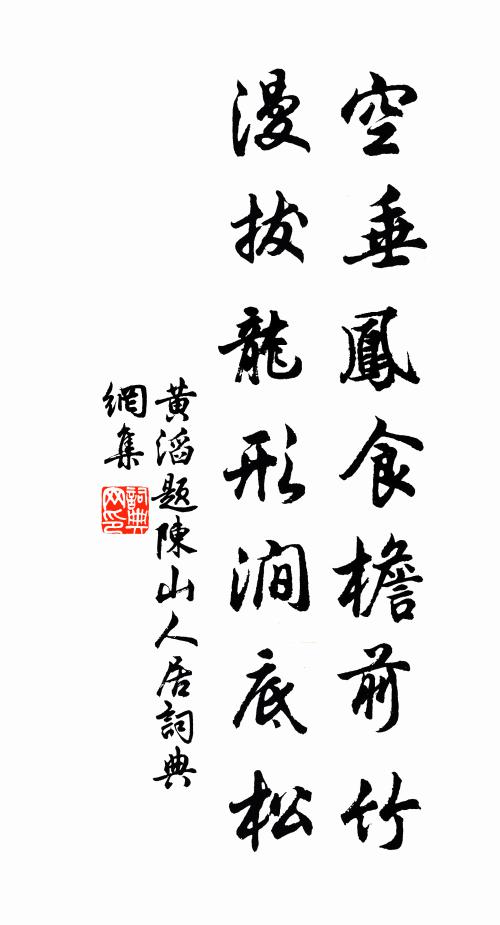 空垂鳳食檐前竹
漫拔龍形澗底松
黃滔題陳山人居詞典
網集
詞典
网印